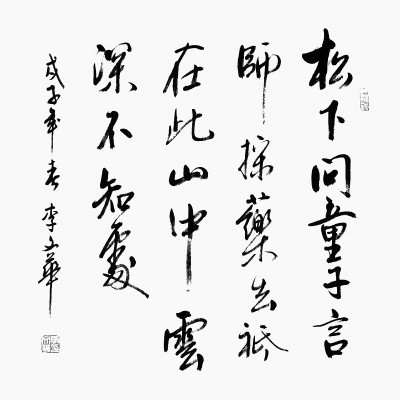 松下問童子言
師採藥去祇
在此山中雲
深不知處
戊子年春 李文華